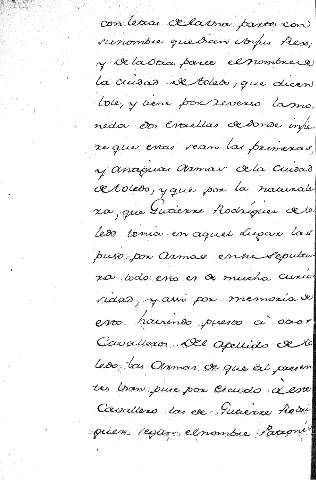 con letras de la una parte con
su nombre que dicen Anfus Rex,
y de la otra parte el nombre de
la ciudad de Toledo, que dicen
tole, y tiene por reverso la mo
neda dos estrellas de donde infie
re que estas sean las primeras,
y antiguas Armas de la Ciudad
de toledo, y que por la naturale
za, que Gutierre Rodriguez de to
ledo tenia en aquel Lugar las
puso por Armas en su sepultu
ra todo esto es de mucha curio
sidad, y assi por memoria de
esto haviendo puesto à otros
Cavalleros Del Apellido de to
ledo las Armas de que al presen
tes usan, puse por escudo à este
Cavallero las de Gutierre Rodri
guez segun el nombre Patroni